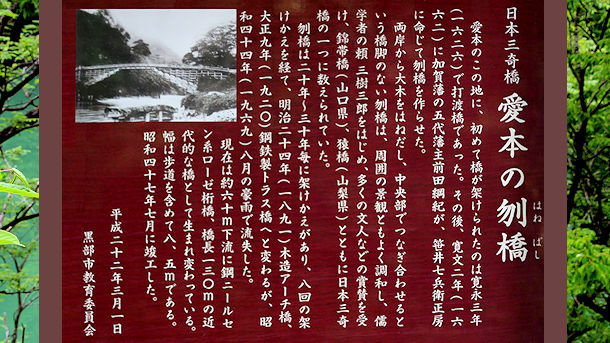 日本三奇橋
愛本の刎橋
はね ばし
愛本のこの地に、初めて橋が架けられたのは寛永三年
(一六二六)で打渡橋であった。その後、寛文二年(一六
六二)に加賀藩の五代藩主前田綱紀が、笹井七兵衛正房
に命じて刎橋を作らせた。
両岸から大木をはねだし、中央部でつなぎ合わせると
いう橋脚のない刎橋は、周囲の景観ともよく調和し、儒
学者の頼三樹三郎をはじめ、多くの文人などの賞賛を受
け、錦帯橋(山口県)、猿橋(山梨県)とともに日本三奇
橋の一つに数えられていた。
刎橋は二十年〜三十年毎に架けかえがあり、八回の架
けかえを経て、明治二十四年(一八九一)木造アーチ橋、
大正九年(一九二〇)鋼鉄製トラス橋へと変わるが、昭
和四十四年(一九六九)八月の豪雨で流失した。
現在は約六十m下流に鋼ニールセ
ン系ローゼ桁橋、橋長一三〇mの近
代的な橋として生まれ変わっている。
幅は歩道を含めて八、五mである。
昭和四十七年七月に竣工した。
平成二十二年三月一日
黒部市教育委員会